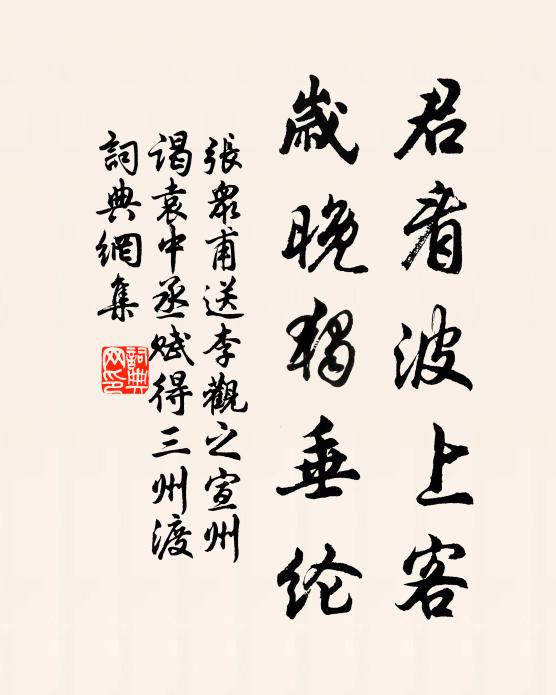 君看波上客
歲晚獨垂纶
張衆甫送李觀之宣州
谒袁中丞赋得三州渡
詞典網集
詞典网印